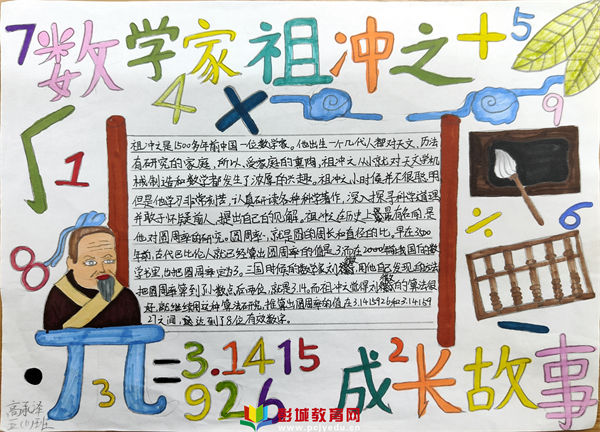 数学家祖冲之
7
+
5
4
×
9
√
1
8
÷
6
祖冲之是1500多年前中国一位数学家。他出生一个几代人都对天文、历法
有研究的家庭，所以，受家庭的熏陶，祖冲之从小就对天文学机
械制造和数学都发生了浓厚的兴趣。祖冲之小时候并不很聪明
但是他学习非常刻苦，认真研读各种科学著作，深入探寻科学道理
并敢于怀疑前人，提出自己的见解。祖冲之在历史上最有名的是
他对圆周率的研究。圆周率，就是圆的周长和直径的比，早在2000
年前，古代巴比伦人就已经算出圆周率的值是3而在2000年前我国的数
学书里，也把圆周率定为3。三国时候的数学家刘徽，用他自己发明的方法
把圆周率算到了小数点后两位，就是3.14。而祖冲之觉得刘徽的算法很
好，就继续用这种算法研究，推算出圆周率的值在3.1415926和3.14159
27之间，达到了8位有效数字。
π=3.1415
926
3
2
成长故事
高承泽
五(1)班
彭城教育网
www.pcjyedu.cn